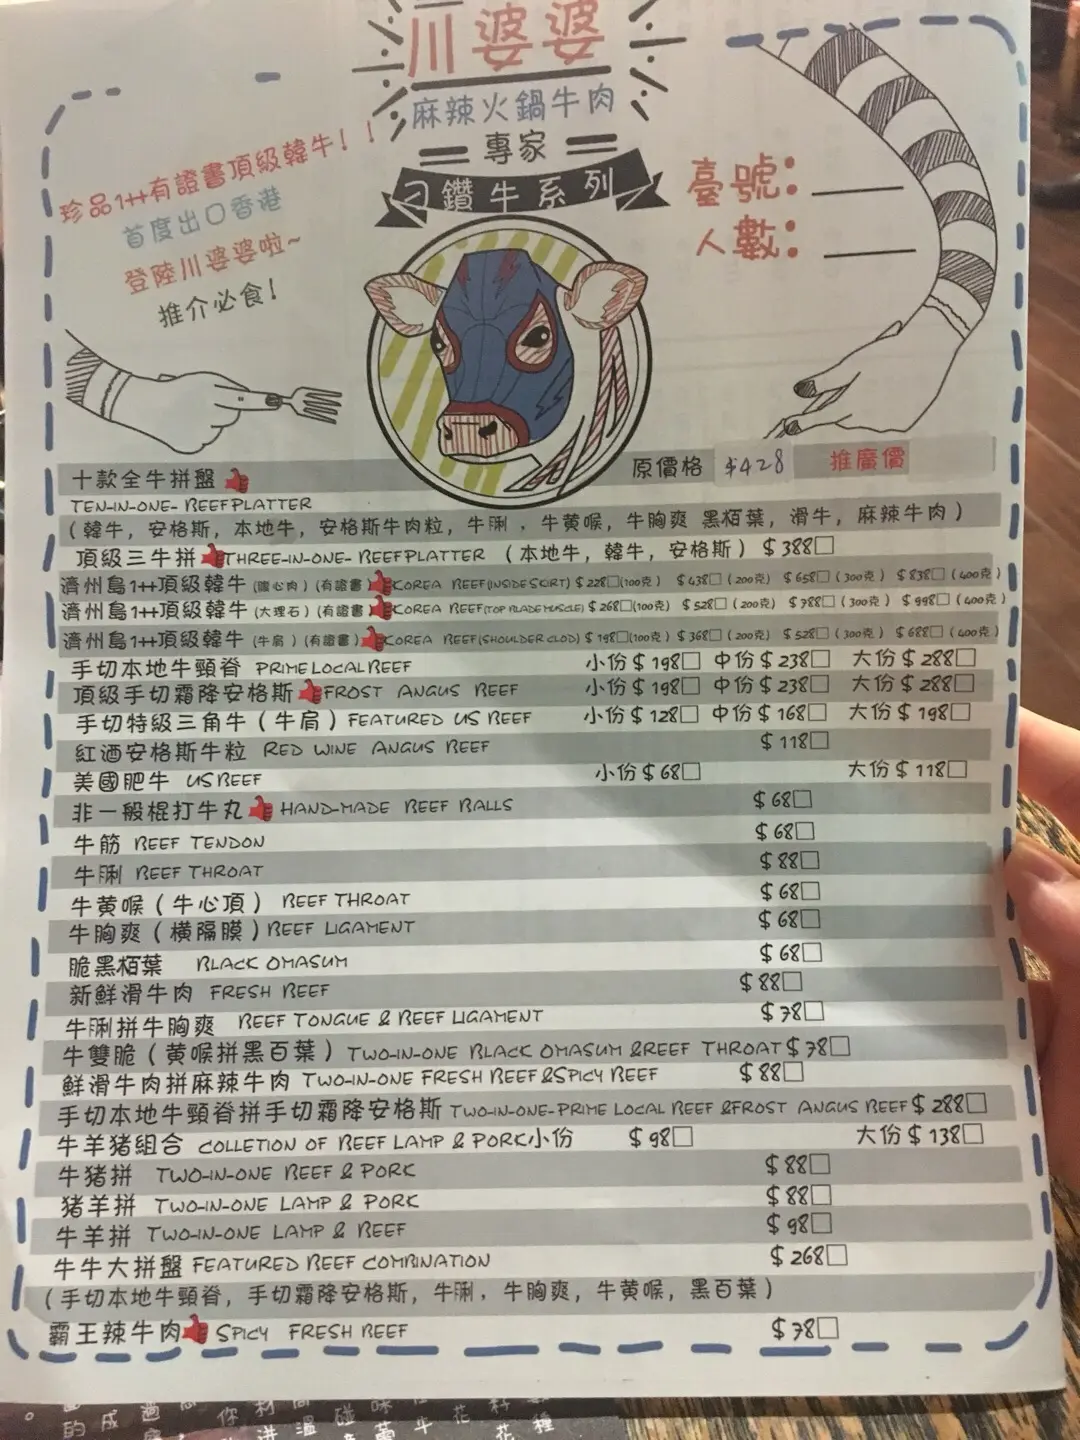 川婆婆
麻辣火鍋牛肉
專家
刁鑽牛系列
珍品1++有證書頂級韓牛！！
首度出口香港
登陸川婆婆啦~
推介必食！
臺號：
人數：
十款全牛拼盤 原價格 $428 推廣價
TEN-IN-ONE- BEEFPLATTER
（韓牛，安格斯，本地牛，安格斯牛肉粒，牛脷，牛黄喉，牛胸爽 黑栢葉，滑牛，麻辣牛肉）
頂級三牛拼 THREE-IN-ONE- BEEFPLATTER （本地牛，韓牛，安格斯）$388□
濟州島1++頂級韓牛（膽心肉）（有證書）KOREA BEEF(INSIDE SKIRT) $228□(100克) $438□(200克) $658□(300克) $838□(400克)
濟州島1++頂級韓牛（大理石）（有證書）KOREA BEEF(TOP BLADE MUSCLE) $268□(100克) $528□(200克) $788□(300克) $998□(400克)
濟州島1++頂級韓牛（牛肩）（有證書）KOREA BEEF(SHOULDER CLOD) $198□(100克) $368□(200克) $528□(300克) $688□(400克)
手切本地牛頸脊 PRIME LOCAL BEEF 小份$198□ 中份$238□ 大份$288□
頂級手切霜降安格斯 FROST ANGUS BEEF 小份$198□ 中份$238□ 大份$288□
手切特級三角牛（牛肩）FEATURED US BEEF 小份$128□ 中份$168□ 大份$198□
紅酒安格斯牛粒 RED WINE ANGUS BEEF $118□
美國肥牛 US BEEF 小份$68□ 大份$118□
非一般棍打牛丸 HAND-MADE BEEF BALLS $68□
牛筋 BEEF TENDON $68□
牛脷 BEEF THROAT $88□
牛黄喉（牛心頂）BEEF THROAT $68□
牛胸爽（橫隔膜）BEEF LIGAMENT $68□
脆黑栢葉 BLACK OMASUM $68□
新鮮滑牛肉 FRESH BEEF $88□
牛脷拼牛胸爽 BEEF TONGUE & BEEF LIGAMENT $78□
牛雙脆（黄喉拼黑百葉）TWO-IN-ONE BLACK OMASUM &REEF THROAT $78□
鮮滑牛肉拼麻辣牛肉 TWO-IN-ONE FRESH BEEF &SPICY BEEF $88□
手切本地牛頸脊拼手切霜降安格斯 TWO-IN-ONE-PRIME LOCAL BEEF &FROST ANGUS BEEF $288□
牛羊猪組合 COLLETION OF BEEF LAMP & PORK小份 $98□ 大份$138□
牛猪拼 TWO-IN-ONE BEEF & PORK $88□
猪羊拼 TWO-IN-ONE LAMP & PORK $88□
牛羊拼 TWO-IN-ONE LAMP & BEEF $98□
牛牛大拼盤 FEATURED BEEF COMBINATION $268□
（手切本地牛頸脊，手切霜降安格斯，牛脷，牛胸爽，牛黄喉，黑百葉）
霸王辣牛肉 SPICY FRESH BEEF $78□